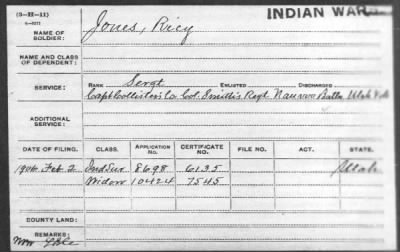 (3-H-11)
INDIAN WAR
NAME OF SOLDIER: Jones, Ricy
NAME AND CLASS OF DEPENDENT:
SERVICE: RANK Sergt ENLISTED DISCHARGED
Capt Collister's Co. Col. Smith's Regt Nauvoo Batln Utah
ADDITIONAL SERVICE:
DATE OF FILING. CLASS. APPLICATION NO. CERTIFICATE NO. FILE NO. ACT. STATE.
1906 Feb 2 Ind Sur 8698 6135 Utah
Widow 10424 7545
COUNTY LAND:
REMARKS: